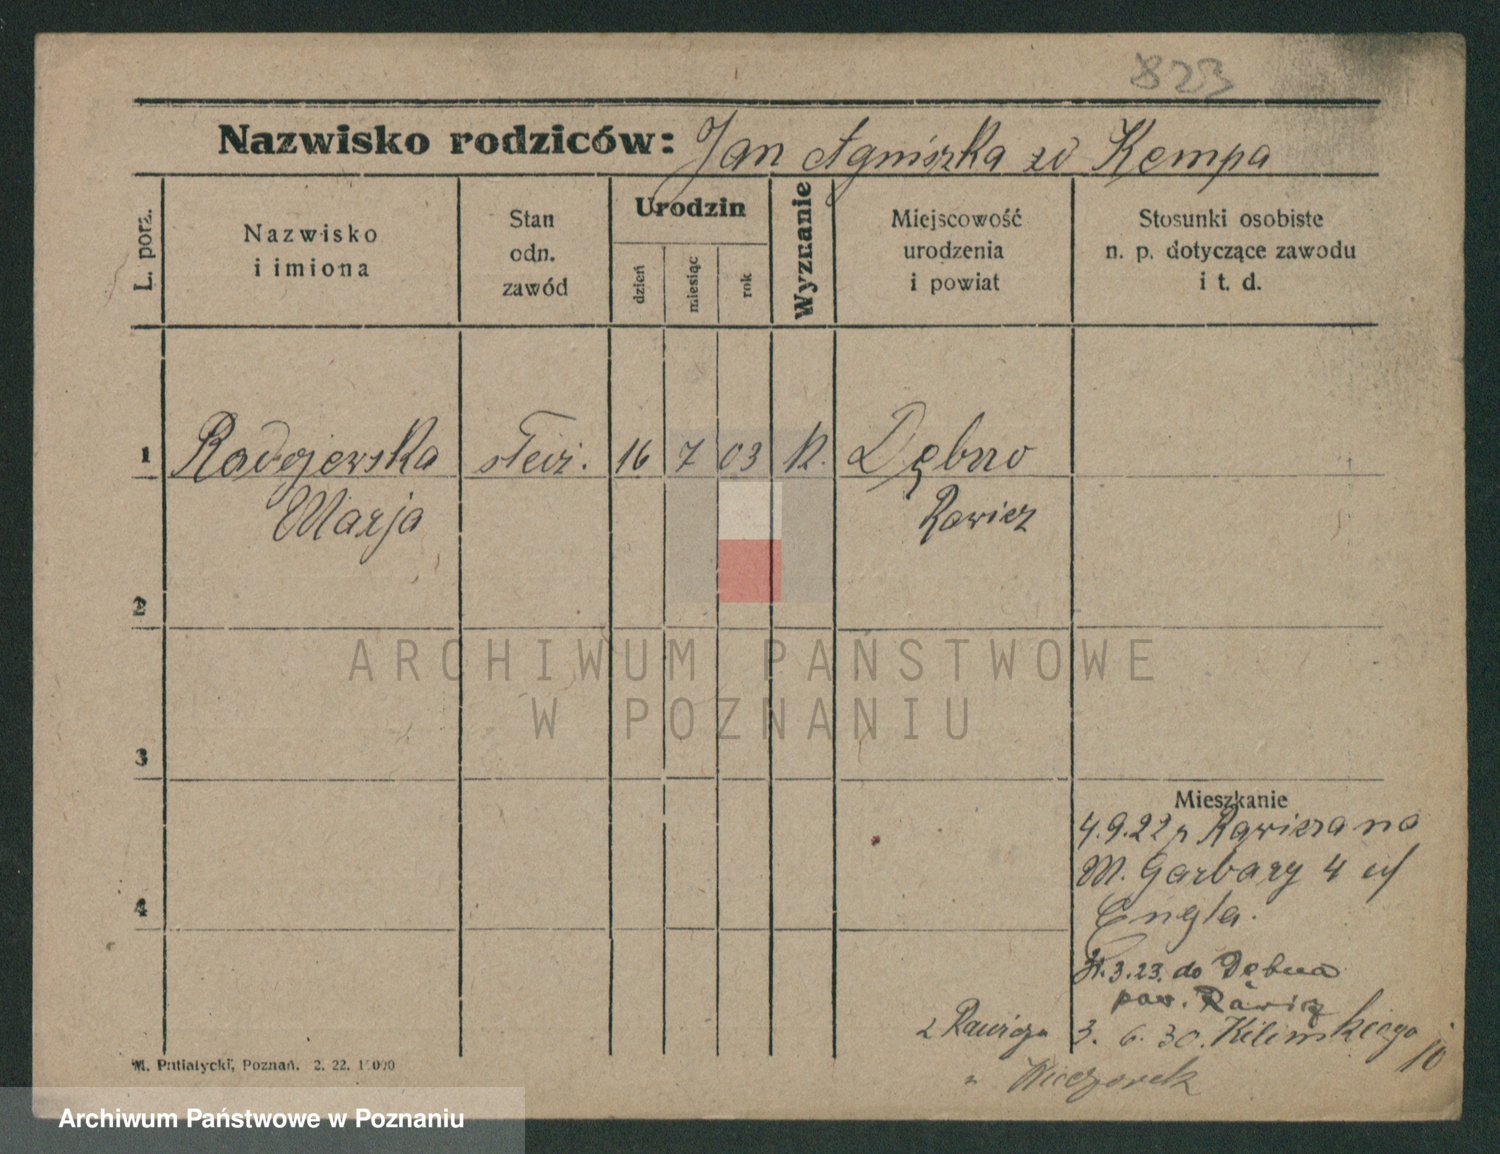 823
Nazwisko rodziców: Jan Agniszka zd Kempa
L. porz.
Nazwisko
i imiona
Stan
odn.
zawód
Urodzin
dzień
miesiąc
rok
Wyznanie
Miejscowość
urodzenia
i powiat
Stosunki osobiste
n. p. dotyczące zawodu
i t. d.
1 Radojewska służ. 16 7 03 K. Dębno
Marja Rawicz
2
ARCHIWUM PAŃSTWOWE
W POZNANIU
3
Mieszkanie
4.9.22 z Rawicza na
M. Garbary 4 u
Engla.
4
3.23. do Dębna
pow. Rawicz
z Rawicza 3. 6. 30. Kilińskiego 10
u Wieczorek
M. Putiatycki, Poznań. 2. 22. 1 000
Archiwum Państwowe w Poznaniu